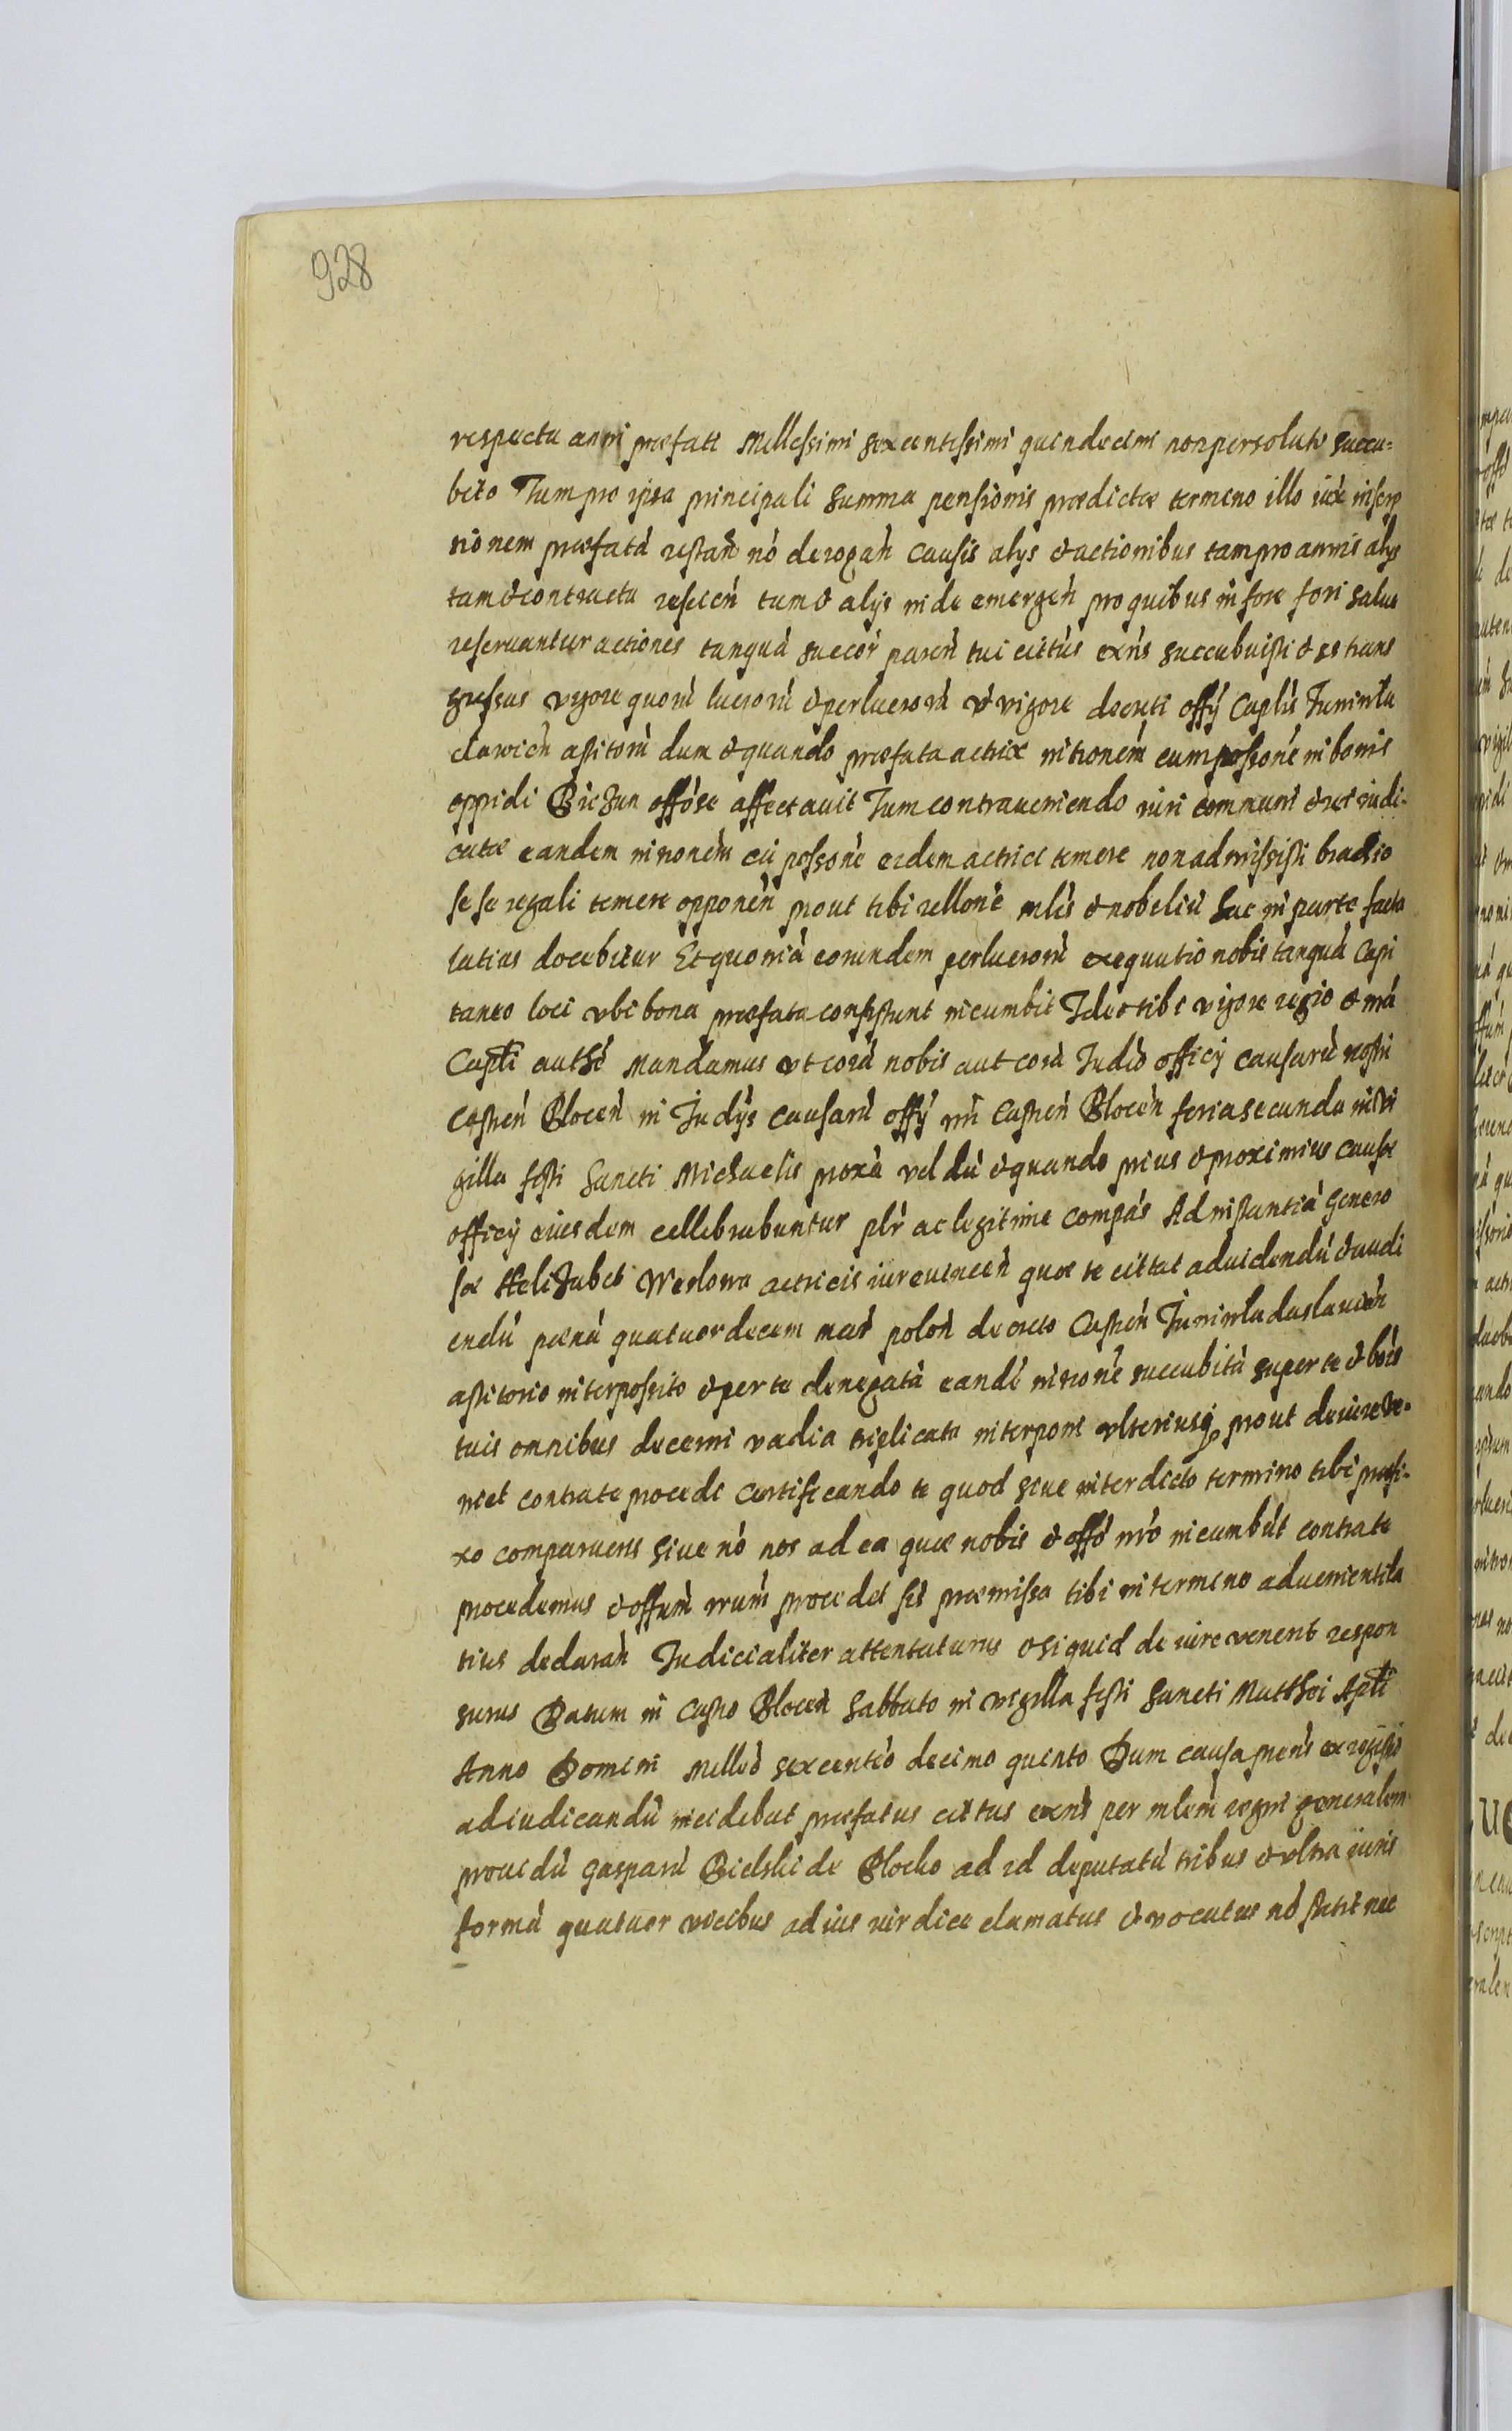 928
respectu anni præfati Millessimi sexcentissimi quindecimi non persoluti succu-
bito Tum pro ipsa principali summa pensionis prædictæ termino illo iux inscrip
tionem præfatá restań nó derogań causis alys & actionibus tam pro annis alys
tam & contractu reficień tum & alijs inde emergeń pro quibus in fore fori saluæ
reservantur actiones tanquá succoŕ pareń tui cittús exńs succubuisti & es trans
gressus vigore quorú lucrorú & perlucrorú & vigore decreti offý Caplís Juniwla
dawień astitorú dum & quando præfata actrix introném cum possoné in bonis
oppidi Biezun offóse affectavit Tum contraveniendo iuri communi & rei iudi-
catæ eandem introném cú possoné eidem actrici temere non admissisti brachio
se se regali temere opponeń prout tibi rellone mlís & nobiliú hac in parte facta
latius docebitur Et quoniá eorundem perlucrorú exequutio nobis tanquá Capi
taneo loci vbi bona præfata consistunt incumbit Ideo tibi vigore regio & má
Capłi authé Mandamus vt corá nobis aut corá Judió officij causarú nostri
Castreń Ploceń in Judýs causarú offý nri Castreń Ploceń feria secunda in vi
gilla festi Sancti Michaelis proxá vel dú & quando prius & proximius causæ
officij eiusdem cellebrabuntur plŕ ac legitime compás Ad instantiá Genero
sæ Helizabet Werlowa actricis iurevinceń quæ te cittat ad videndú & audi
endú pœná quatuordecem mar poloń decreto Castreń Juniwladaslauień
astitorio interpossito & per te denegatá eandé intioné succubitá super te & bóis
tuis omnibus decerni vadia triplicata interponi vlteriusq prout de iure ve-
niet contra te procedi Certificando te quod siue interdicto termino tibi præfi-
xo comparueris siue nó nos ad ea quæ nobis & offó nró incumbút contra te
procedemus & offum nrum procedet sis præmissa tibi in termino advenienti la
tius declarań Judicialiter attentaturus & si quid de iure venerit respon
surus Datum in Castro Ploceń Sabbato in vigilla festi Sancti Matthæi Apłi
Anno Domini Milleo sexcenteo decimo quinto Dum causa prens ex regestro
ad iudicandú incidebat præfatus cittus exns per mlem regni generalem
providú Gasparú Bielski de Plocko ad id deputatú tribus & vltra iuris
formá quatuor vicibus ad ius iurdice clamatus & vocatus nó stetit nec